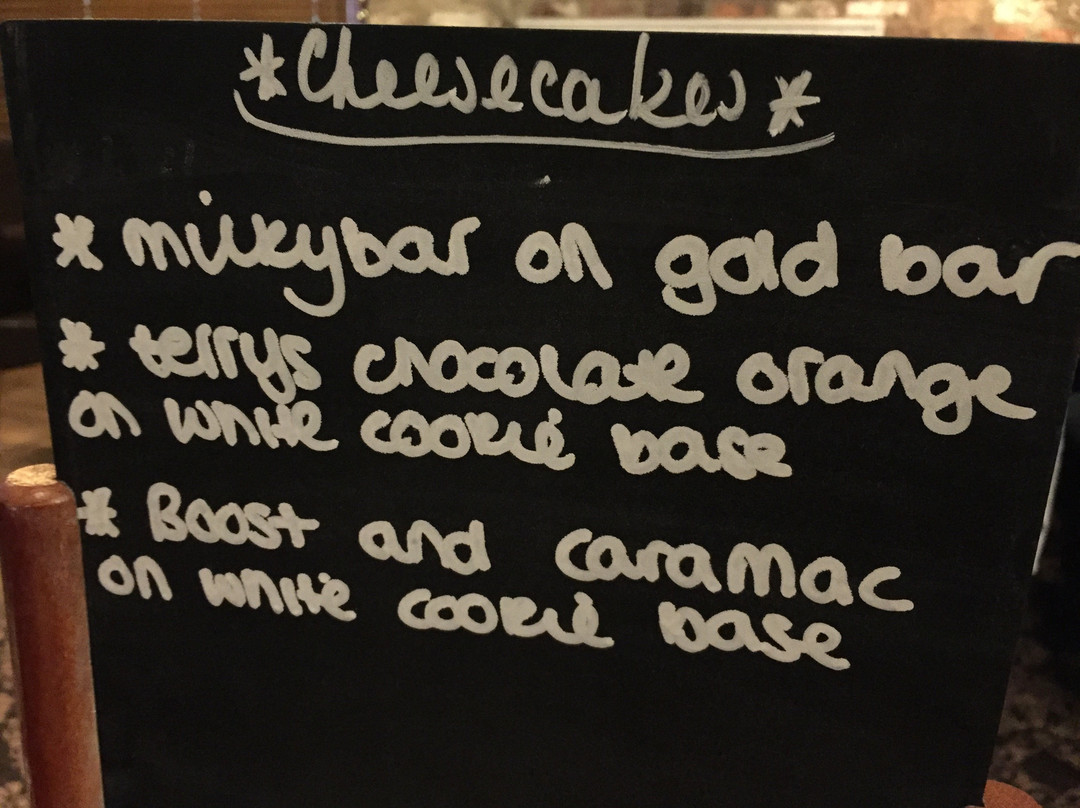 *Cheesecakes*
* milkybar on gold bar
* terrys chocolate orange
on white cookie base
* Boost and caramac
on white cookie base